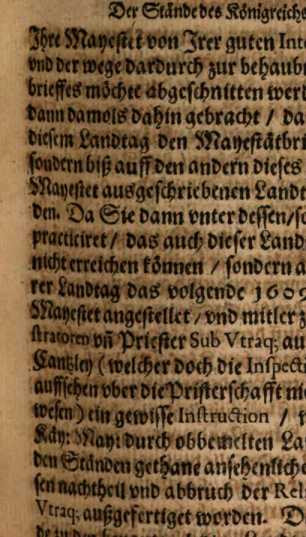 Der Stände des Königreichs
Ihre Mayestet von Irer guten Inte
vnd der wege dardurch zur behaubt
brieffes möchte abgeschnitten wer
dann damols dahin gebracht / da
diesem Landtag den Mayestätbri
sondern biß auff den andern dieses
Mayestet ausgeschriebenen Landt
den. Da Sie dann vnter dessen/so
practiciret / das auch dieser Land
nicht erreichen können / sondern a
rer Landtag das volgende 1609
Mayestet angestellet / vnd mitler z
stratoren vñ Priester Sub Vtraq; au
Cantzley (welcher doch die Inspecti
auffsehen vber die Pristerschafft ni
wesen) ein gewisse Instruction /
Käy: May: durch obbemelten La
den Ständen gethane ansehenliche
sen nachtheil vnd abbruch der Rel
Vtraq; außgefertiget worden. D